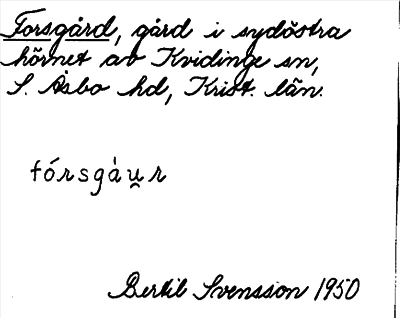 Forsgård, gård i sydöstra
hörnet av Kvidinge sn,
S. Åsbo hd, Krist. län.
fórsgȧu̯r
Bertil Svensson 1950